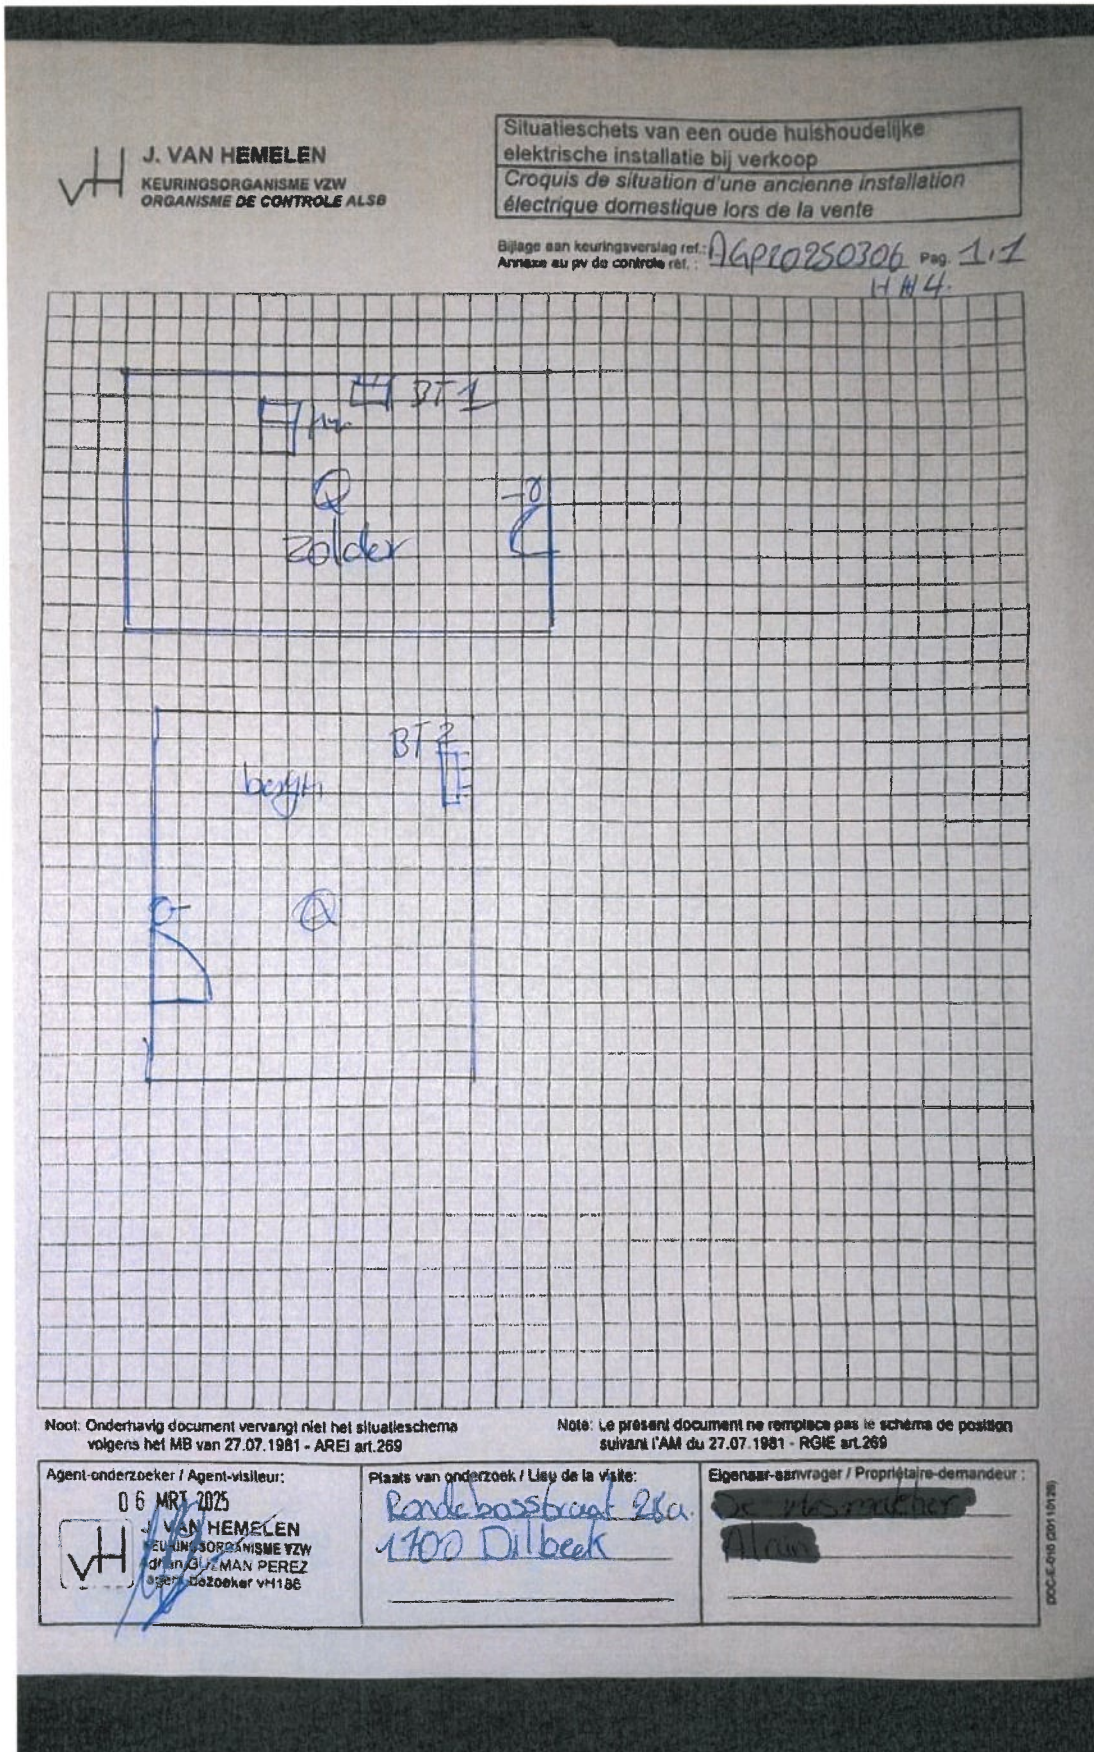 J. VAN HEMELEN
KEURINGSORGANISME VZW
ORGANISME DE CONTROLE ALSB
Situatieschets van een oude huishoudelijke
elektrische installatie bij verkoop
Croquis de situation d'une ancienne installation
électrique domestique lors de la vente
Bijlage aan keuringsverslag ref.: AGP20250306 Pag. 1.1
Annexe au pv de controle réf. :
HH4.
BT 1
zolder
BT 2
Noot: Onderhavig document vervangt niet het situatieschema
volgens het MB van 27.07.1981 - AREI art.269
Note: Le présent document ne remplace pas le schéma de position
suivant l'AM du 27.07.1981 - RGIE art.269
Agent-onderzoeker / Agent-visiteur:
06 MRT 2025
J. VAN HEMELEN
KEURINGSORGANISME VZW
GUZMAN PEREZ
vH186
Plaats van onderzoek / Lieu de la visite:
1700 Dilbeek
Eigenaar-aanvrager / Propriétaire-demandeur :
DOC-E-016 (20110126)